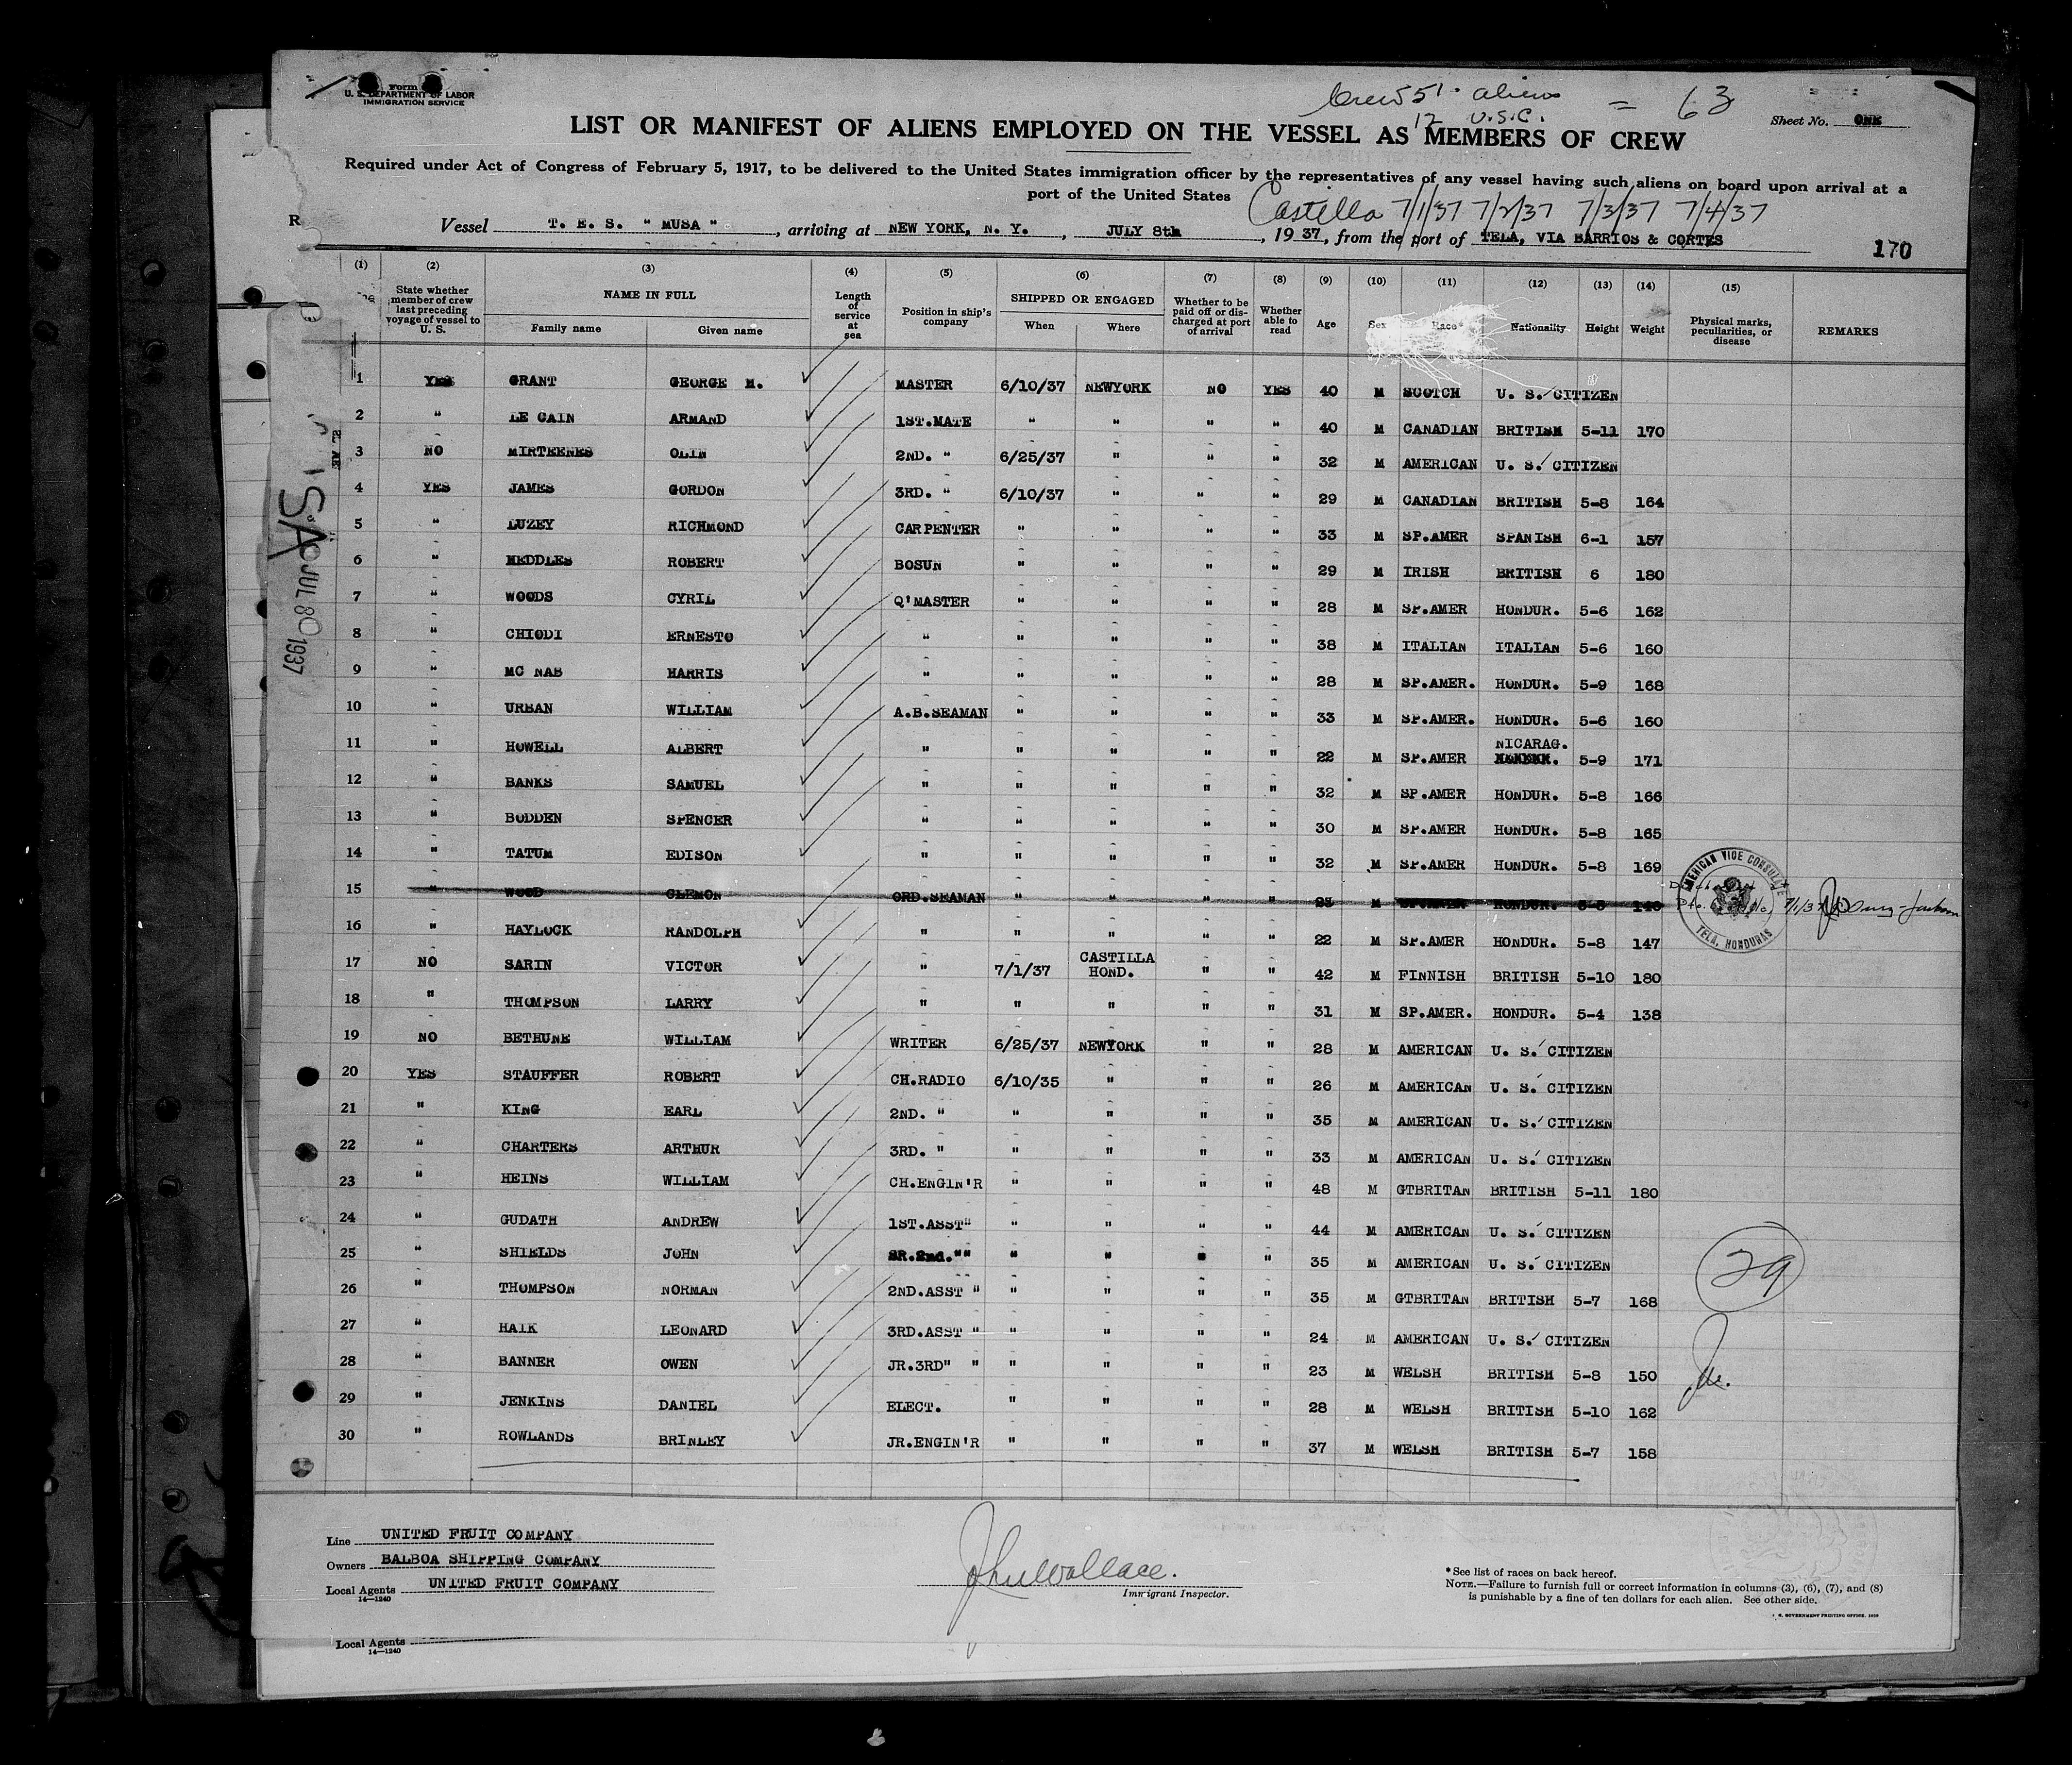 Form
U. S. DEPARTMENT OF LABOR
IMMIGRATION SERVICE
Crew 51 aliens
12 U.S.C. = 63
Sheet No. ONE
LIST OR MANIFEST OF ALIENS EMPLOYED ON THE VESSEL AS MEMBERS OF CREW
Required under Act of Congress of February 5, 1917, to be delivered to the United States immigration officer by the representatives of any vessel having such aliens on board upon arrival at a
port of the United States
Castilla 7/1/37 7/2/37 7/3/37 7/4/37
R
Vessel T. E. S. " MUSA ", arriving at NEW YORK, N. Y., JULY 8th, 1937, from the port of TELA, VIA BARRIOS & CORTES
170
(1) (2) (3) (4) (5) (6) (7) (8) (9) (10) (11) (12) (13) (14) (15)
State whether member of crew last preceding voyage of vessel to U. S. NAME IN FULL Family name Given name Length of service at sea Position in ship's company SHIPPED OR ENGAGED When Where Whether to be paid off or discharged at port of arrival Whether able to read Age Sex Race* Nationality Height Weight Physical marks, peculiarities, or disease REMARKS
1 YES GRANT GEORGE M. MASTER 6/10/37 NEWYORK NO YES 40 M SCOTCH U. S. CITIZEN
2 " LE CAIN ARMAND 1ST.MATE " " " " 40 M CANADIAN BRITISH 5-11 170
3 NO MIRTEENES OLIN 2ND. " 6/25/37 " " " 32 M AMERICAN U. S. CITIZEN
4 YES JAMES GORDON 3RD. " 6/10/37 " " " 29 M CANADIAN BRITISH 5-8 164
5 " LUZEY RICHMOND CARPENTER " " " " 33 M SP.AMER SPANISH 6-1 157
6 " HEDDLES ROBERT BOSUN " " " " 29 M IRISH BRITISH 6 180
7 " WOODS CYRIL Q'MASTER " " " " 28 M SP.AMER HONDUR. 5-6 162
8 " CHIODI ERNESTO " " " " " 38 M ITALIAN ITALIAN 5-6 160
9 " MC NAB HARRIS " " " " " 28 M SP.AMER. HONDUR. 5-9 168
10 " URBAN WILLIAM A.B.SEAMAN " " " " 33 M SP.AMER. HONDUR. 5-6 160
11 " HOWELL ALBERT " " " " " 22 M SP.AMER NICARAG. 5-9 171
12 " BANKS SAMUEL " " " " " 32 M SP.AMER HONDUR. 5-8 166
13 " BODDEN SPENCER " " " " " 30 M SP.AMER HONDUR. 5-8 165
14 " TATUM EDISON " " " " " 32 M SP.AMER HONDUR. 5-8 169
15 " WOOD CLEMON ORD.SEAMAN " " " " 23 M HONDUR. 7/1/37
AMERICAN VICE CONSULATE
TELA, HONDURAS
16 " HAYLOCK RANDOLPH " " " " " 22 M SP.AMER HONDUR. 5-8 147
17 NO SARIN VICTOR " 7/1/37 CASTILLA HOND. " " 42 M FINNISH BRITISH 5-10 180
18 " THOMPSON LARRY " " " " " 31 M SP.AMER. HONDUR. 5-4 138
19 NO BETHUNE WILLIAM WRITER 6/25/37 NEWYORK " " 28 M AMERICAN U. S. CITIZEN
20 YES STAUFFER ROBERT CH.RADIO 6/10/35 " " " 26 M AMERICAN U. S. CITIZEN
21 " KING EARL 2ND. " " " " " 35 M AMERICAN U. S. CITIZEN
22 " CHARTERS ARTHUR 3RD. " " " " " 33 M AMERICAN U. S. CITIZEN
23 " HEINS WILLIAM CH.ENGIN'R " " " " 48 M GTBRITAN BRITISH 5-11 180
24 " GUDATH ANDREW 1ST.ASST" " " " " 44 M AMERICAN U. S. CITIZEN
25 " SHIELDS JOHN SR.2nd."" " " " " 35 M AMERICAN U. S. CITIZEN
29
26 " THOMPSON NORMAN 2ND.ASST " " " " " 35 M GTBRITAN BRITISH 5-7 168
27 " HAIK LEONARD 3RD.ASST " " " " " 24 M AMERICAN U. S. CITIZEN
28 " BANNER OWEN JR.3RD" " " " " " 23 M WELSH BRITISH 5-8 150
29 " JENKINS DANIEL ELECT. " " " " 28 M WELSH BRITISH 5-10 162
30 " ROWLANDS BRINLEY JR.ENGIN'R " " " " 37 M WELSH BRITISH 5-7 158
JUL 8 1937
Line UNITED FRUIT COMPANY
Owners BALBOA SHIPPING COMPANY
Local Agents UNITED FRUIT COMPANY
14—1240
John Wallace.
Immigrant Inspector.
*See list of races on back hereof.
NOTE.—Failure to furnish full or correct information in columns (3), (6), (7), and (8)
is punishable by a fine of ten dollars for each alien. See other side.
Local Agents
14—1240